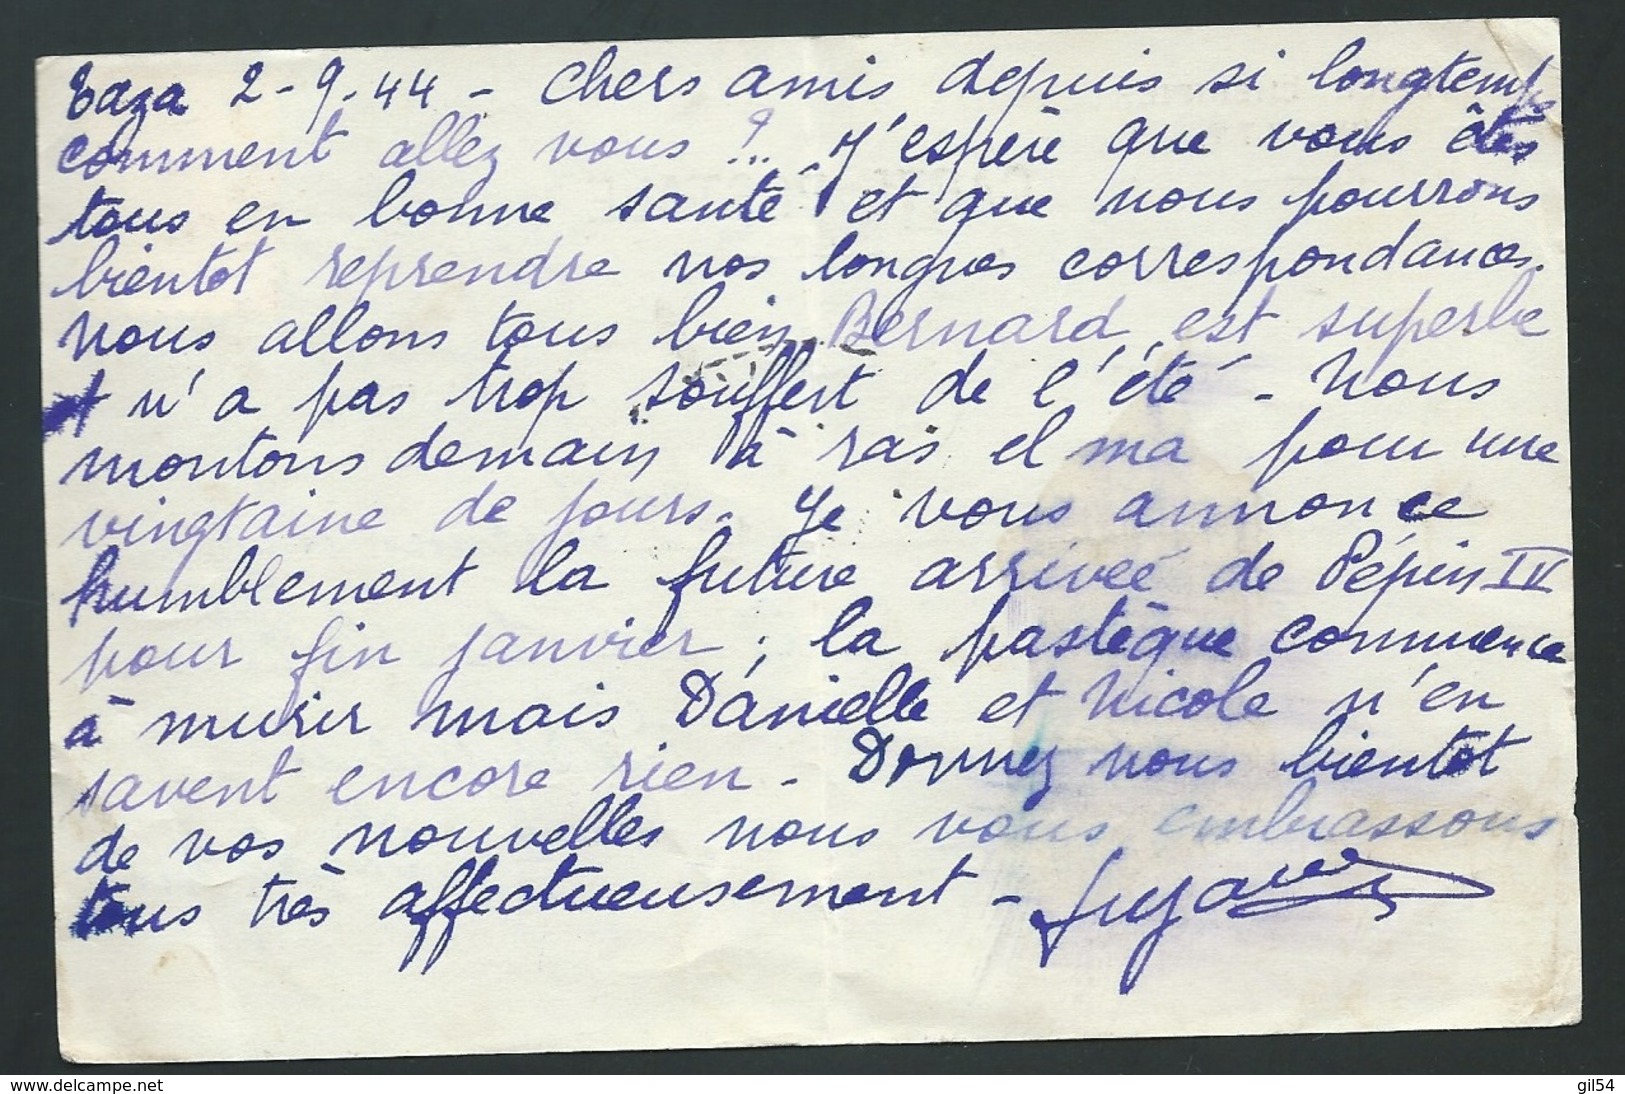 Taza 2-9-44 - Chers amis depuis si longtemps
comment allez vous ?!.. J'espère que vous êtes
tous en bonne santé et que nous pourrons
bientot reprendre nos longues correspondances.
Nous allons tous bien, Bernard est superbe
et n'a pas trop souffert de l'été - Nous
montons demain à ras el ma pour une
vingtaine de jours. Je vous annonce
humblement la future arrivée de Pépin IV
pour fin janvier ; la pastèque commence
à murir mais Danielle et Nicole n'en
savent encore rien - Donnez nous bientot
de vos nouvelles nous vous embrassons
tous très affectueusement -
www.delcampe.net
gil54